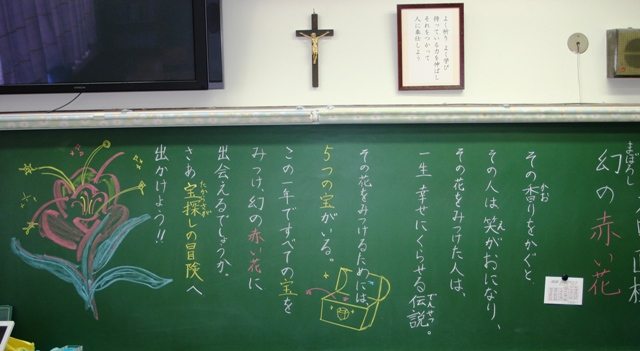 よく祈り よく学び
持っている力を伸ばし
それをつかって
人に奉仕しよう
まぼろし
幻の赤い花
かお
その香りをかぐと、
その人は笑がおになり、
その花をみつけた人は、
一生幸せにくらせる伝説。
でんせつ
その花をみつけるためには、
5つの宝がいる。
この一年ですべての宝を
みつけ、幻の赤い花に
出会えるでしょうか。
さあ宝探しの冒険へ
出かけよう!!